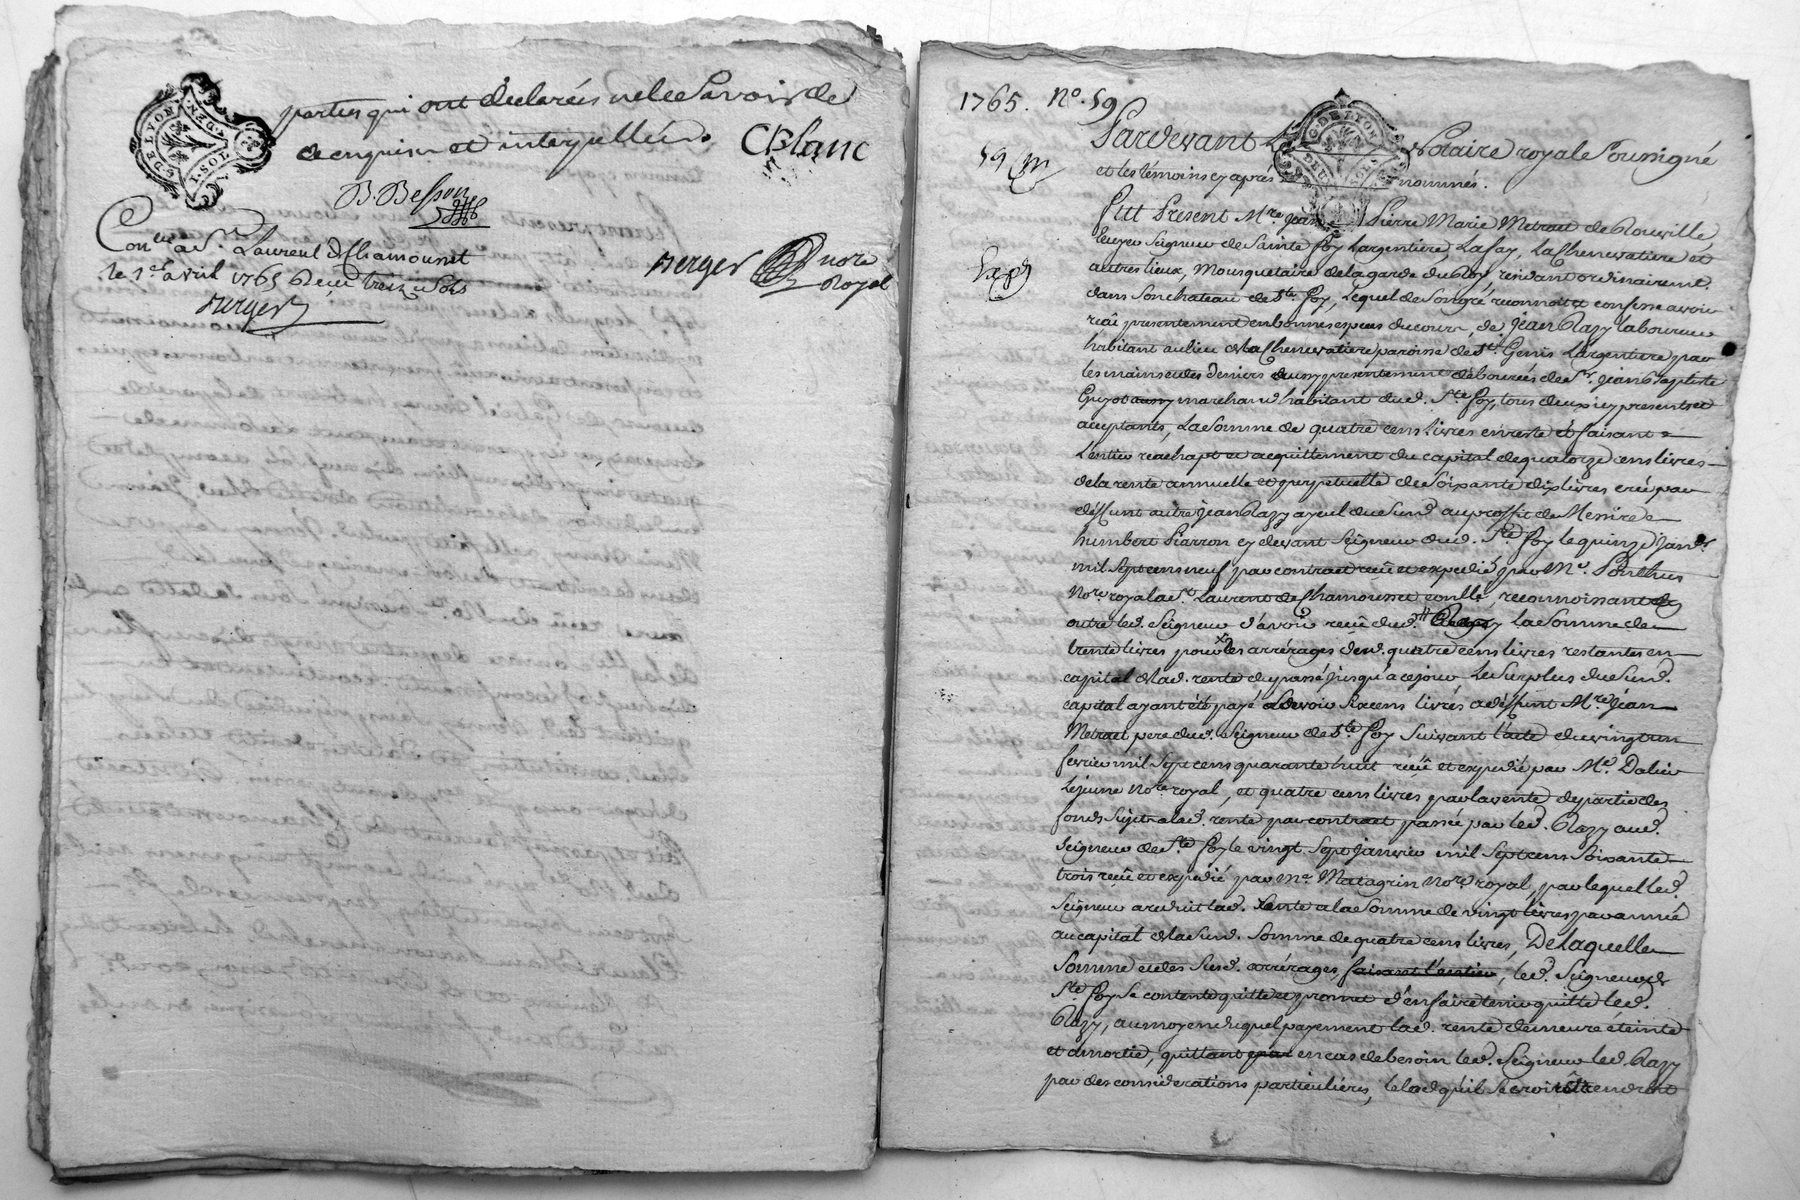 parties qui ont déclarés ne le Savoir de
ce enquis et interpellés.
CBlanc
B. Besson
Con.lé a S.t Laurent d Chamousset
le 1.er avril 1765 Reçu treize Sols
Berger
Berger nore
Royal
G. DE LYON
1. SOL
DEN.
1765. No. 59
59
G. DE LYON
Pardevant Le Notaire royal Soussigné
et les témoins cy après nommés.
Fut Present M.re Jean Pierre Marie Metrat de Rouville,
Ecuyer Seigneur de Sainte Foy Largentiere, Lafay, La Chenevatiere et
autres lieux, Mousquetaire de la garde du Roy, residant ordinairement
dans Son chateau de S.te Foy, Lequel de Son gré reconnoit et confesse avoir
reçu presentement en bonnes espèces du cours, de Jean Razy laboureur
habitant au lieu de la Chenevatiere paroisse de S.t Genis Largentiere par
les mains et des deniers presentement déboursés de S.r Jean Baptiste
Guyot marchand habitant dud. S.te Foy, tous deux icy presents et
acceptants, La Somme de quatre cens livres en reste et faisant
L'entier reachapt et acquittement du capital de quatorze cens livres
de la rente annuelle et perpetuelle de Soixante dix livres créé par
deffunt autre Jean Razy ayeul du Susd. au proffit de Messire
humbert Piarron cy devant Seigneur dud. S.te Foy le quinze Janv.r
mil Sept cens neuf par contrat reçu et expedié par M.e Ponthus
No.re royal a S.t Laurent de Chamousset conllé, reconnoissant
outre led. Seigneur d'avoir reçu dud. Razy La Somme de
trente livres pour les arrérages desd. quatre cens livres restantes en
capital de lad. rente du passé jusqu'à ce jour, Le Surplus du Susd.
capital ayant été payé a Scavoir Six cens livres a deffunt M.re Jean
Metrat pere dud. Seigneur de S.te Foy Suivant l'acte du vingt un
fevrier mil Sept cens quarante huit reçu et expedié par M.e Dalier
Lejeune No.re royal, et quatre cens livres par la vente de partie des
fonds Sujets a lad. rente par contrat passé par led. Razy aud.
Seigneur de S.te Foy le vingt Sept Janvier mil Sept cens Soixante
trois reçu et expedié par M.e Matagrin No.re royal, par lequel led.
Seigneur a reduit lad. Rente a la Somme de vingt livres par année
au capital de la Susd. Somme de quatre cens livres, De laquelle
Somme et des Susd. arrérages, faisant l'entier, led. Seigneur de
S.te Foy Se contente quitte et promet d'en faire tenir quitte led.
Razy, au moyen duquel payement lad. rente demeure éteinte
et amortie, quittant en cas de besoin led. Seigneur led. Razy
par des considerations particulières, le lod qu'il Se croiroit en droit